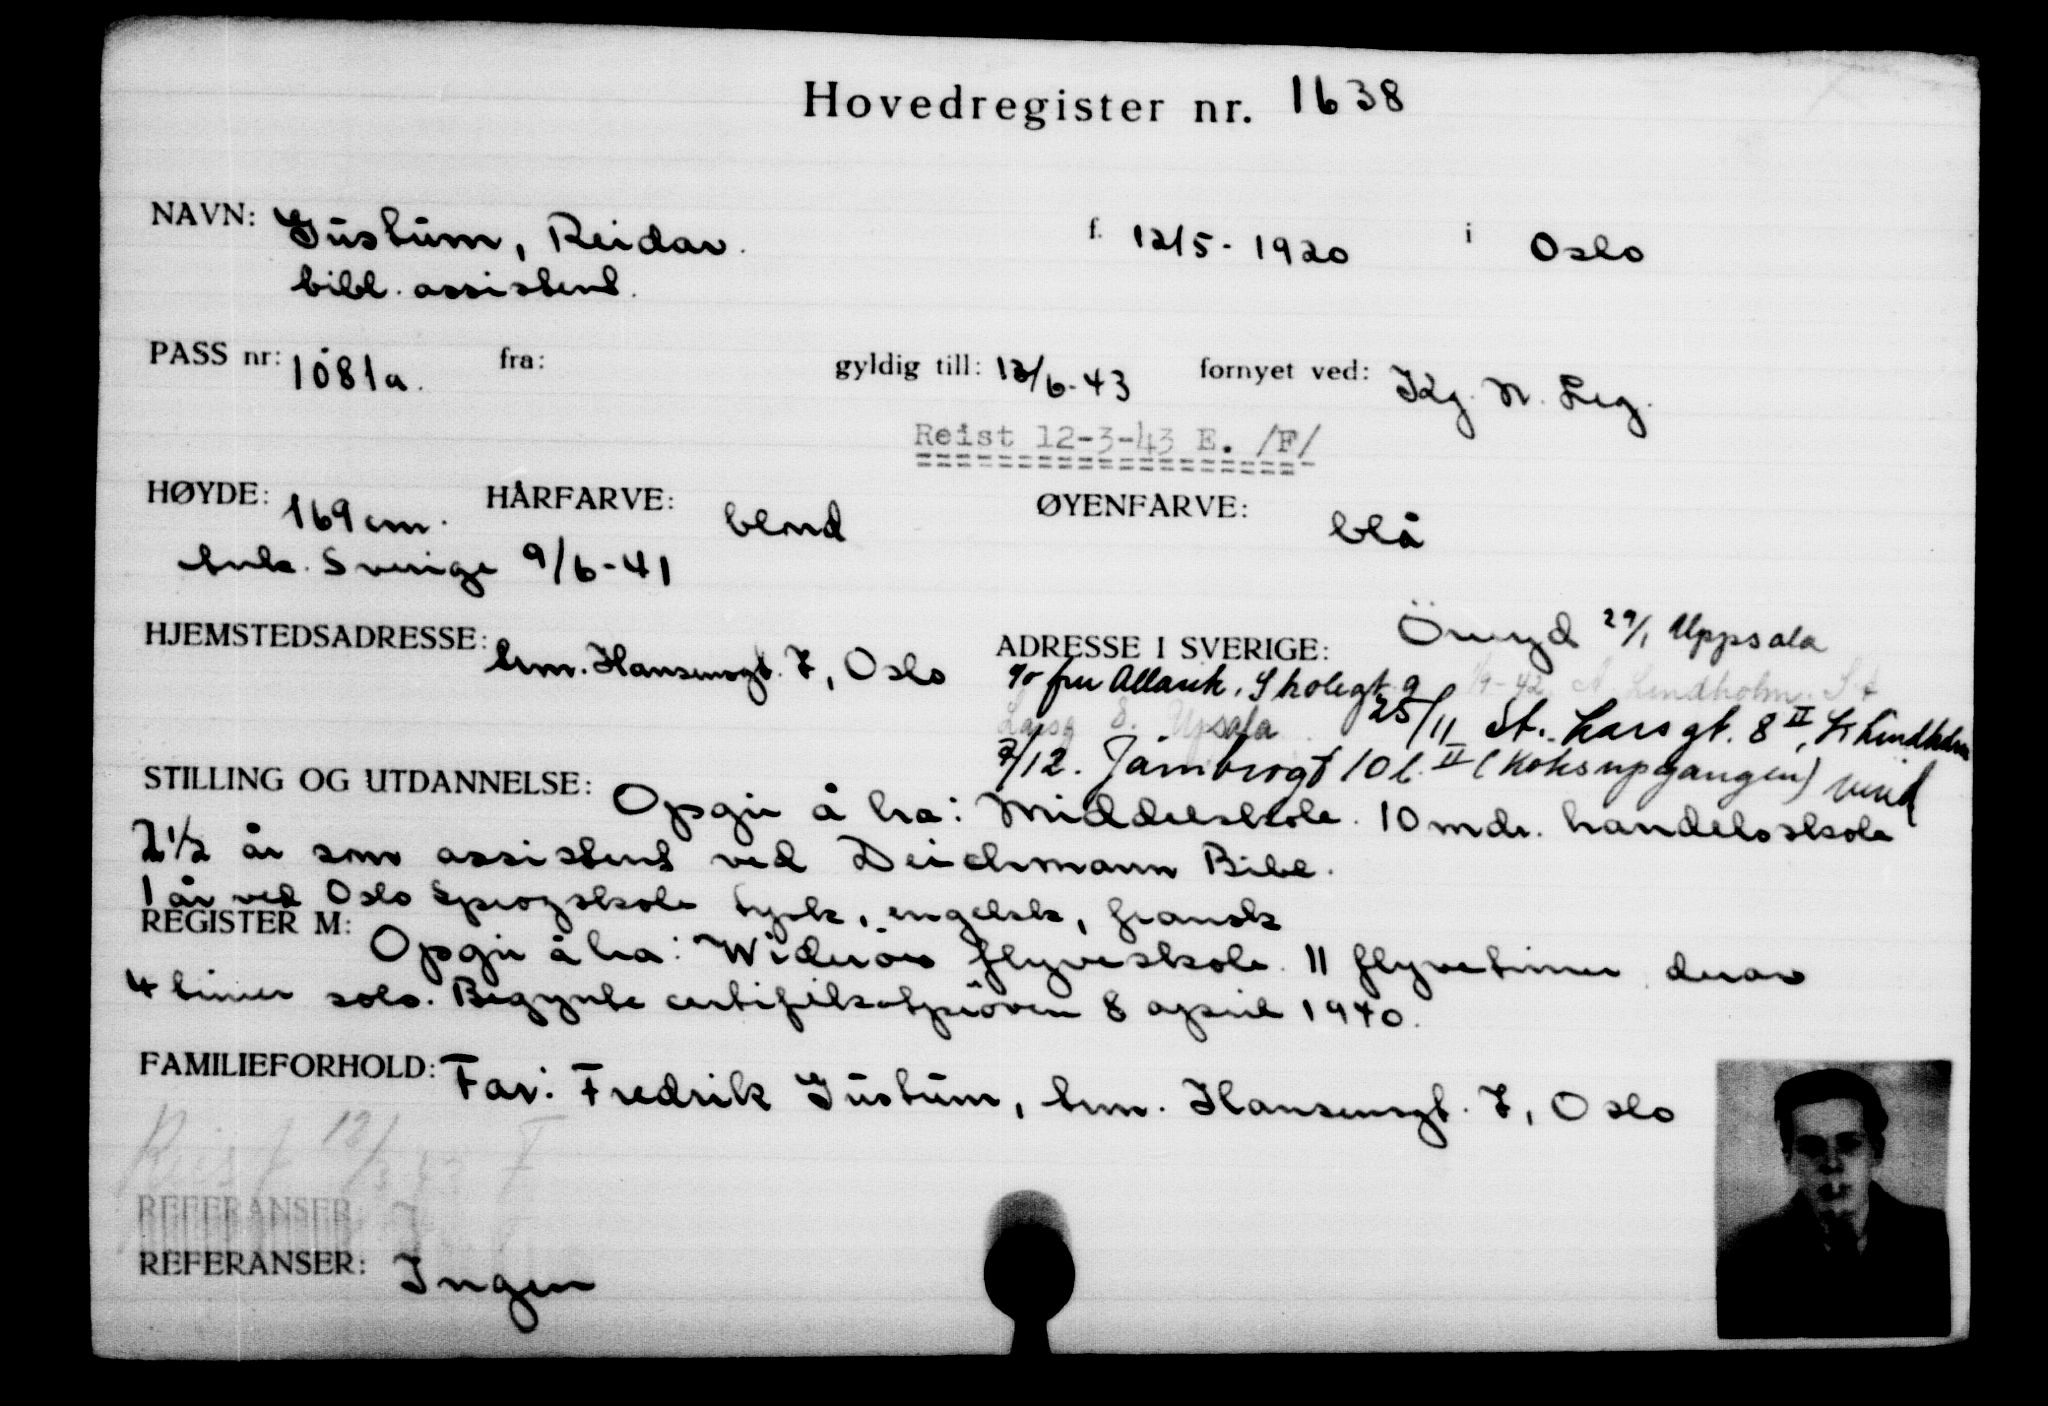 Hovedregister nr. 1638
NAVN: Justum, Reidar. f. 12/5-1920 i Oslo
bibl. assistent.
PASS nr: 1081a. fra: gyldig till: 12/6-43 fornyet ved: Kg. N. Leg.
Reist 12-3-43 E. /F/
HØYDE: 169 cm. HÅRFARVE: blond ØYENFARVE: blå
Ank. Sverige 9/6-41
HJEMSTEDSADRESSE: Arm. Hansensgt. 7, Oslo ADRESSE I SVERIGE: Öreryd 29/1 Uppsala
c/o fru Allark, Skolegt. 9 1/9-42 A. Lindholm. St
Larsg 8. Upsala 25/11 St. Larsgt. 8 II, Lindholm
7/12. Järnbrogt 10 b. II (Köksupgången)
STILLING OG UTDANNELSE: Opgir å ha: Middelskole. 10 mdr. handelsskole
2 1/2 år som assistent ved Deichmann Bibl.
1 år ved Oslo Sprogskole tysk, engelsk, fransk
REGISTER M: Opgir å ha: Widerøes flyveskole. 11 flyvetimer derav
4 timer solo. Begynte certifikatpröven 8 april 1940.
FAMILIEFORHOLD: Far: Fredrik Justum, Arm. Hansensgt. 7, Oslo
Reist 12/3 43 F
REFERANSER
REFERANSER: Ingen